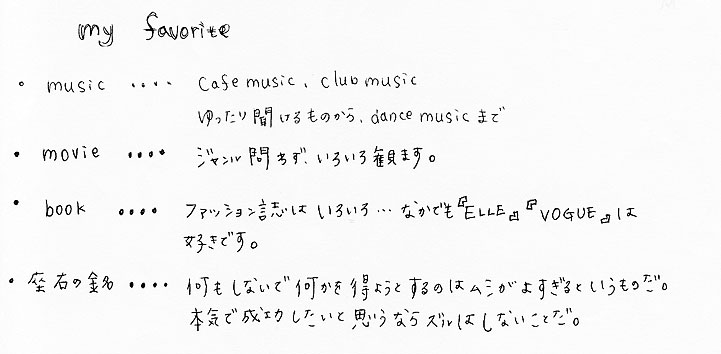 my favorite
・ music ‥‥ Cafe music、club music
ゆったり聞けるものから、dance musicまで
・ movie ‥‥ ジャンル問わず、いろいろ観ます。
・ book ‥‥ ファッション誌はいろいろ…なかでも『ELLE』『VOGUE』は
好きです。
・ 座右の銘 ‥‥ 何もしないで何かを得ようとするのはムシがよすぎるというものだ。
本気で成功したいと思うならズルはしないことだ。